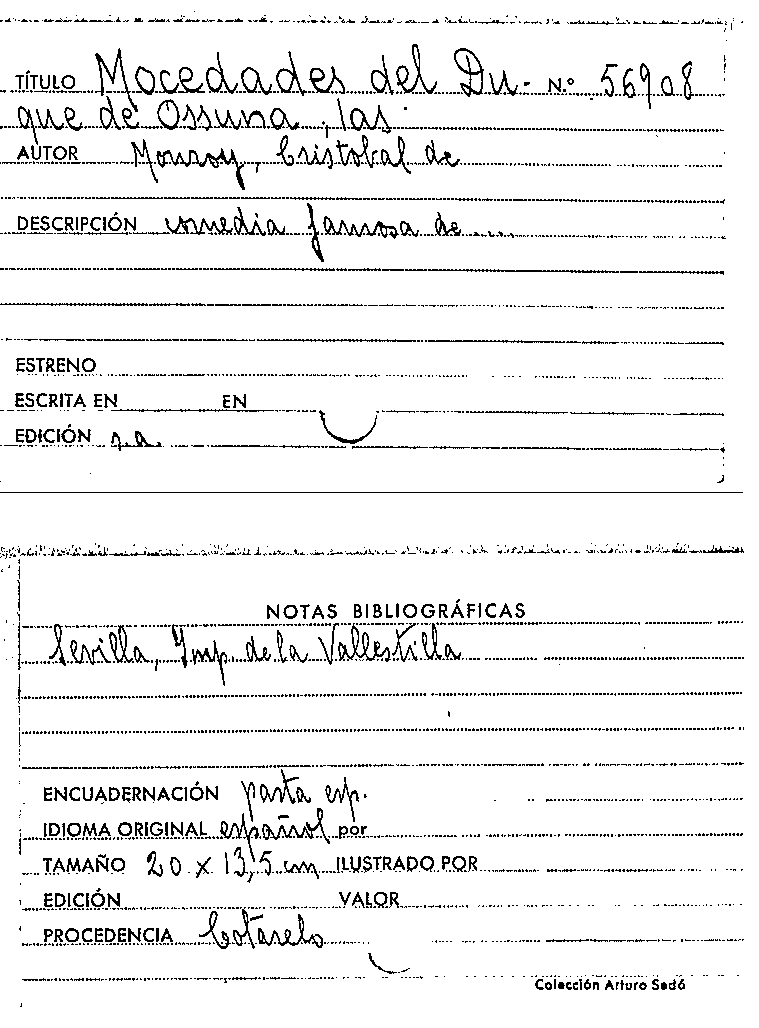 TÍTULO Mocedades del Du- N.º 56908
que de Ossuna, las
AUTOR Monroy, Cristobal de
DESCRIPCIÓN comedia famosa de ....
ESTRENO
ESCRITA EN EN
EDICIÓN s.a.
NOTAS BIBLIOGRÁFICAS
Sevilla, Imp. de la Vallestilla
ENCUADERNACIÓN pasta esp.
IDIOMA ORIGINAL español por
TAMAÑO 20 x 13,5 cm ILUSTRADO POR
EDICIÓN VALOR
PROCEDENCIA Cotarelo
Colección Arturo Sedó